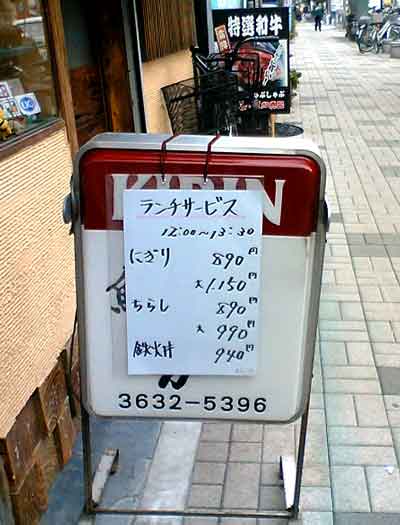 特選和牛
KIRIN
ランチサービス
12:00~13:30
にぎり 890円
大 1.150円
ちらし 890円
大 990円
鉄火丼 940円
3632-5396